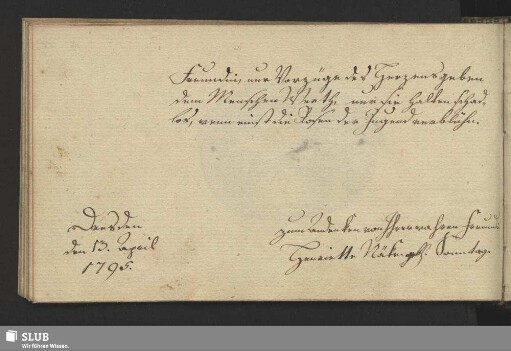 Freundin, nur Vorzüge des Herzens geben
dem Menschen Werth, nur sie halten schad-
los, wenn einst die Rosen der Jugend verblühn.
Dresden
den 13. April
1795.
zum Andenken von Ihrer wahren Freundin
Henriette Sonntag.
SLUB
Wir führen Wissen.